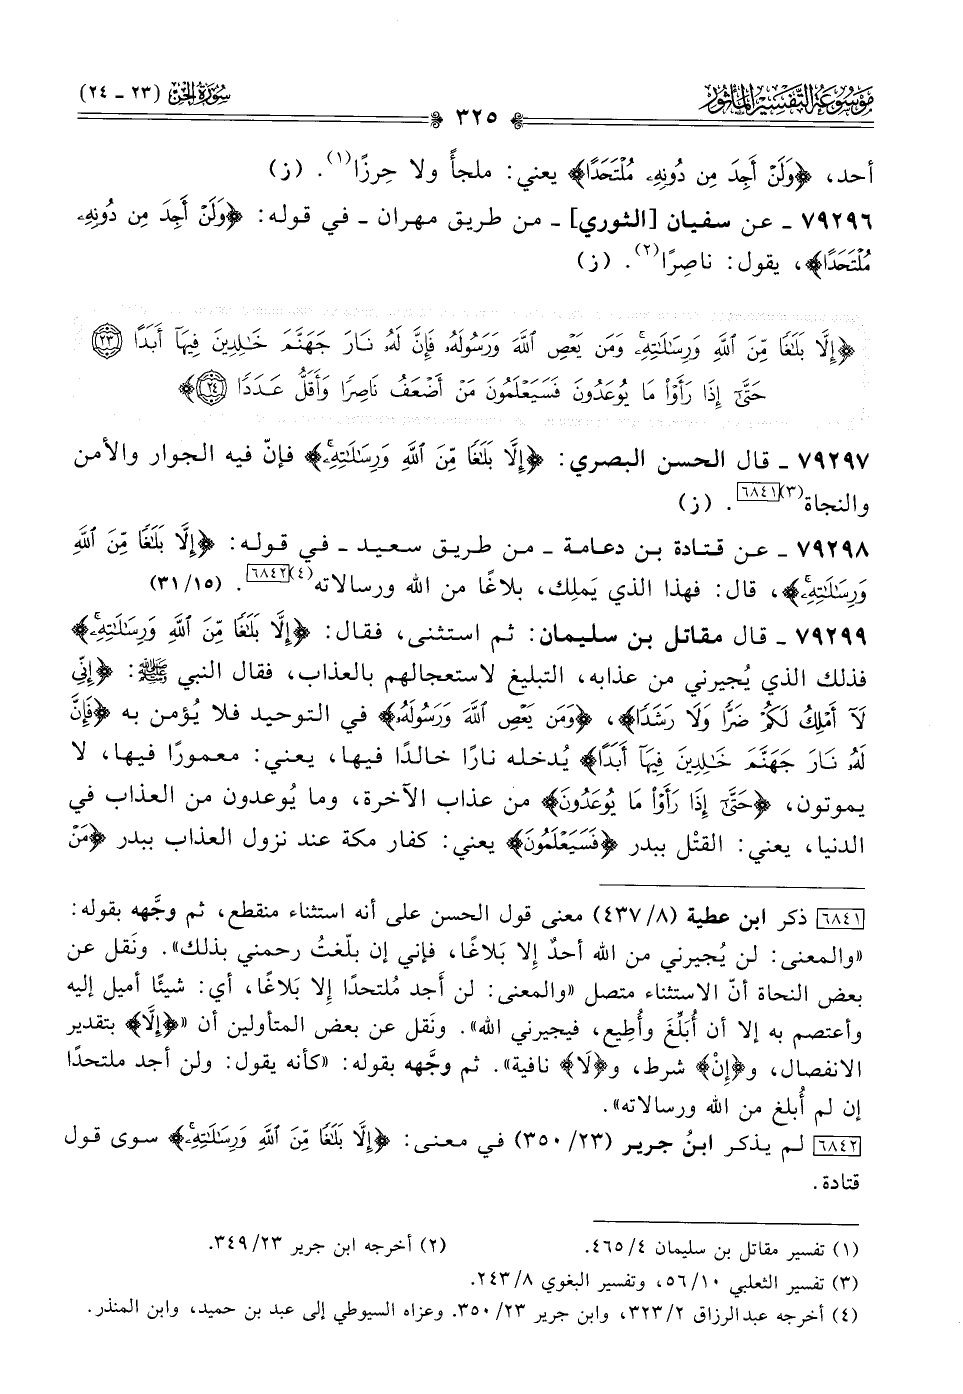 مَوْسُوعَة التَّفْسِير المَأْثُور
سُورَةُ الجِنّ (٢٣ - ٢٤)
٣٢٥
أحد، ﴿وَلَنْ أَجِدَ مِن دُونِهِۦ مُلْتَحَدًا﴾ يعني: ملجأً ولا حِرزًا(١). (ز)
٧٩٢٩٦ ـ عن سفيان [الثوري] ـ من طريق مهران ـ في قوله: ﴿وَلَنْ أَجِدَ مِن دُونِهِۦ
مُلْتَحَدًا﴾، يقول: ناصِرًا(٢). (ز)
﴿إِلَّا بَلَٰغًا مِّنَ ٱللَّهِ وَرِسَٰلَٰتِهِۦۚ وَمَن يَعْصِ ٱللَّهَ وَرَسُولَهُۥ فَإِنَّ لَهُۥ نَارَ جَهَنَّمَ خَٰلِدِينَ فِيهَآ أَبَدًا ﴿٢٣﴾
حَتَّىٰٓ إِذَا رَأَوْا۟ مَا يُوعَدُونَ فَسَيَعْلَمُونَ مَنْ أَضْعَفُ نَاصِرًا وَأَقَلُّ عَدَدًا ﴿٢٤﴾﴾
٧٩٢٩٧ ـ قال الحسن البصري: ﴿إِلَّا بَلَٰغًا مِّنَ ٱللَّهِ وَرِسَٰلَٰتِهِۦۚ﴾ فإنّ فيه الجوار والأمن
والنجاة(٣)[٦٨٤١]. (ز)
٧٩٢٩٨ ـ عن قتادة بن دعامة ـ من طريق سعيد ـ في قوله: ﴿إِلَّا بَلَٰغًا مِّنَ ٱللَّهِ
وَرِسَٰلَٰتِهِۦۚ﴾، قال: فهذا الذي يَملِك، بلاغًا من الله ورسالاته(٤)[٦٨٤٢]. (١٥/ ٣١)
٧٩٢٩٩ ـ قال مقاتل بن سليمان: ثم استثنى، فقال: ﴿إِلَّا بَلَٰغًا مِّنَ ٱللَّهِ وَرِسَٰلَٰتِهِۦۚ﴾
فذلك الذي يُجيرني من عذابه، التبليغ لاستعجالهم بالعذاب، فقال النبي ﷺ: ﴿إِنِّى
لَآ أَمْلِكُ لَكُمْ ضَرًّا وَلَا رَشَدًا﴾، ﴿وَمَن يَعْصِ ٱللَّهَ وَرَسُولَهُۥ﴾ في التوحيد فلا يُؤمن به ﴿فَإِنَّ
لَهُۥ نَارَ جَهَنَّمَ خَٰلِدِينَ فِيهَآ أَبَدًا﴾ يُدخله نارًا خالدًا فيها، يعني: معمورًا فيها، لا
يموتون، ﴿حَتَّىٰٓ إِذَا رَأَوْا۟ مَا يُوعَدُونَ﴾ من عذاب الآخرة، وما يُوعدون من العذاب في
الدنيا، يعني: القتْل ببدر ﴿فَسَيَعْلَمُونَ﴾ يعني: كفار مكة عند نزول العذاب ببدر ﴿مَنْ
[٦٨٤١] ذكر ابن عطية (٨/ ٤٣٧) معنى قول الحسن على أنه استثناء منقطع، ثم وجَّهه بقوله:
«والمعنى: لن يُجيرني من الله أحدٌ إلا بَلاغًا، فإني إن بلّغتُ رحمني بذلك». ونَقل عن
بعض النحاة أنّ الاستثناء متصل «والمعنى: لن أجد مُلتحدًا إلا بَلاغًا، أي: شيئًا أميل إليه
وأعتصم به إلا أن أُبَلِّغَ وأُطِيع، فيجيرني الله». ونَقل عن بعض المتأولين أن «﴿إِلَّا﴾ بتقدير
الانفصال، و﴿إِنْ﴾ شرط، و﴿لَا﴾ نافية». ثم وجَّهه بقوله: «كأنه يقول: ولن أجد ملتحدًا
إن لم أُبلغ من الله ورسالاته».
[٦٨٤٢] لم يذكر ابنُ جرير (٢٣/ ٣٥٠) في معنى: ﴿إِلَّا بَلَٰغًا مِّنَ ٱللَّهِ وَرِسَٰلَٰتِهِۦۚ﴾ سوى قول
قتادة.
(١) تفسير مقاتل بن سليمان ٤/ ٤٦٥.
(٢) أخرجه ابن جرير ٢٣/ ٣٤٩.
(٣) تفسير الثعلبي ١٠/ ٥٦، وتفسير البغوي ٨/ ٢٤٣.
(٤) أخرجه عبدالرزاق ٢/ ٣٢٣، وابن جرير ٢٣/ ٣٥٠. وعزاه السيوطي إلى عبد بن حميد، وابن المنذر.